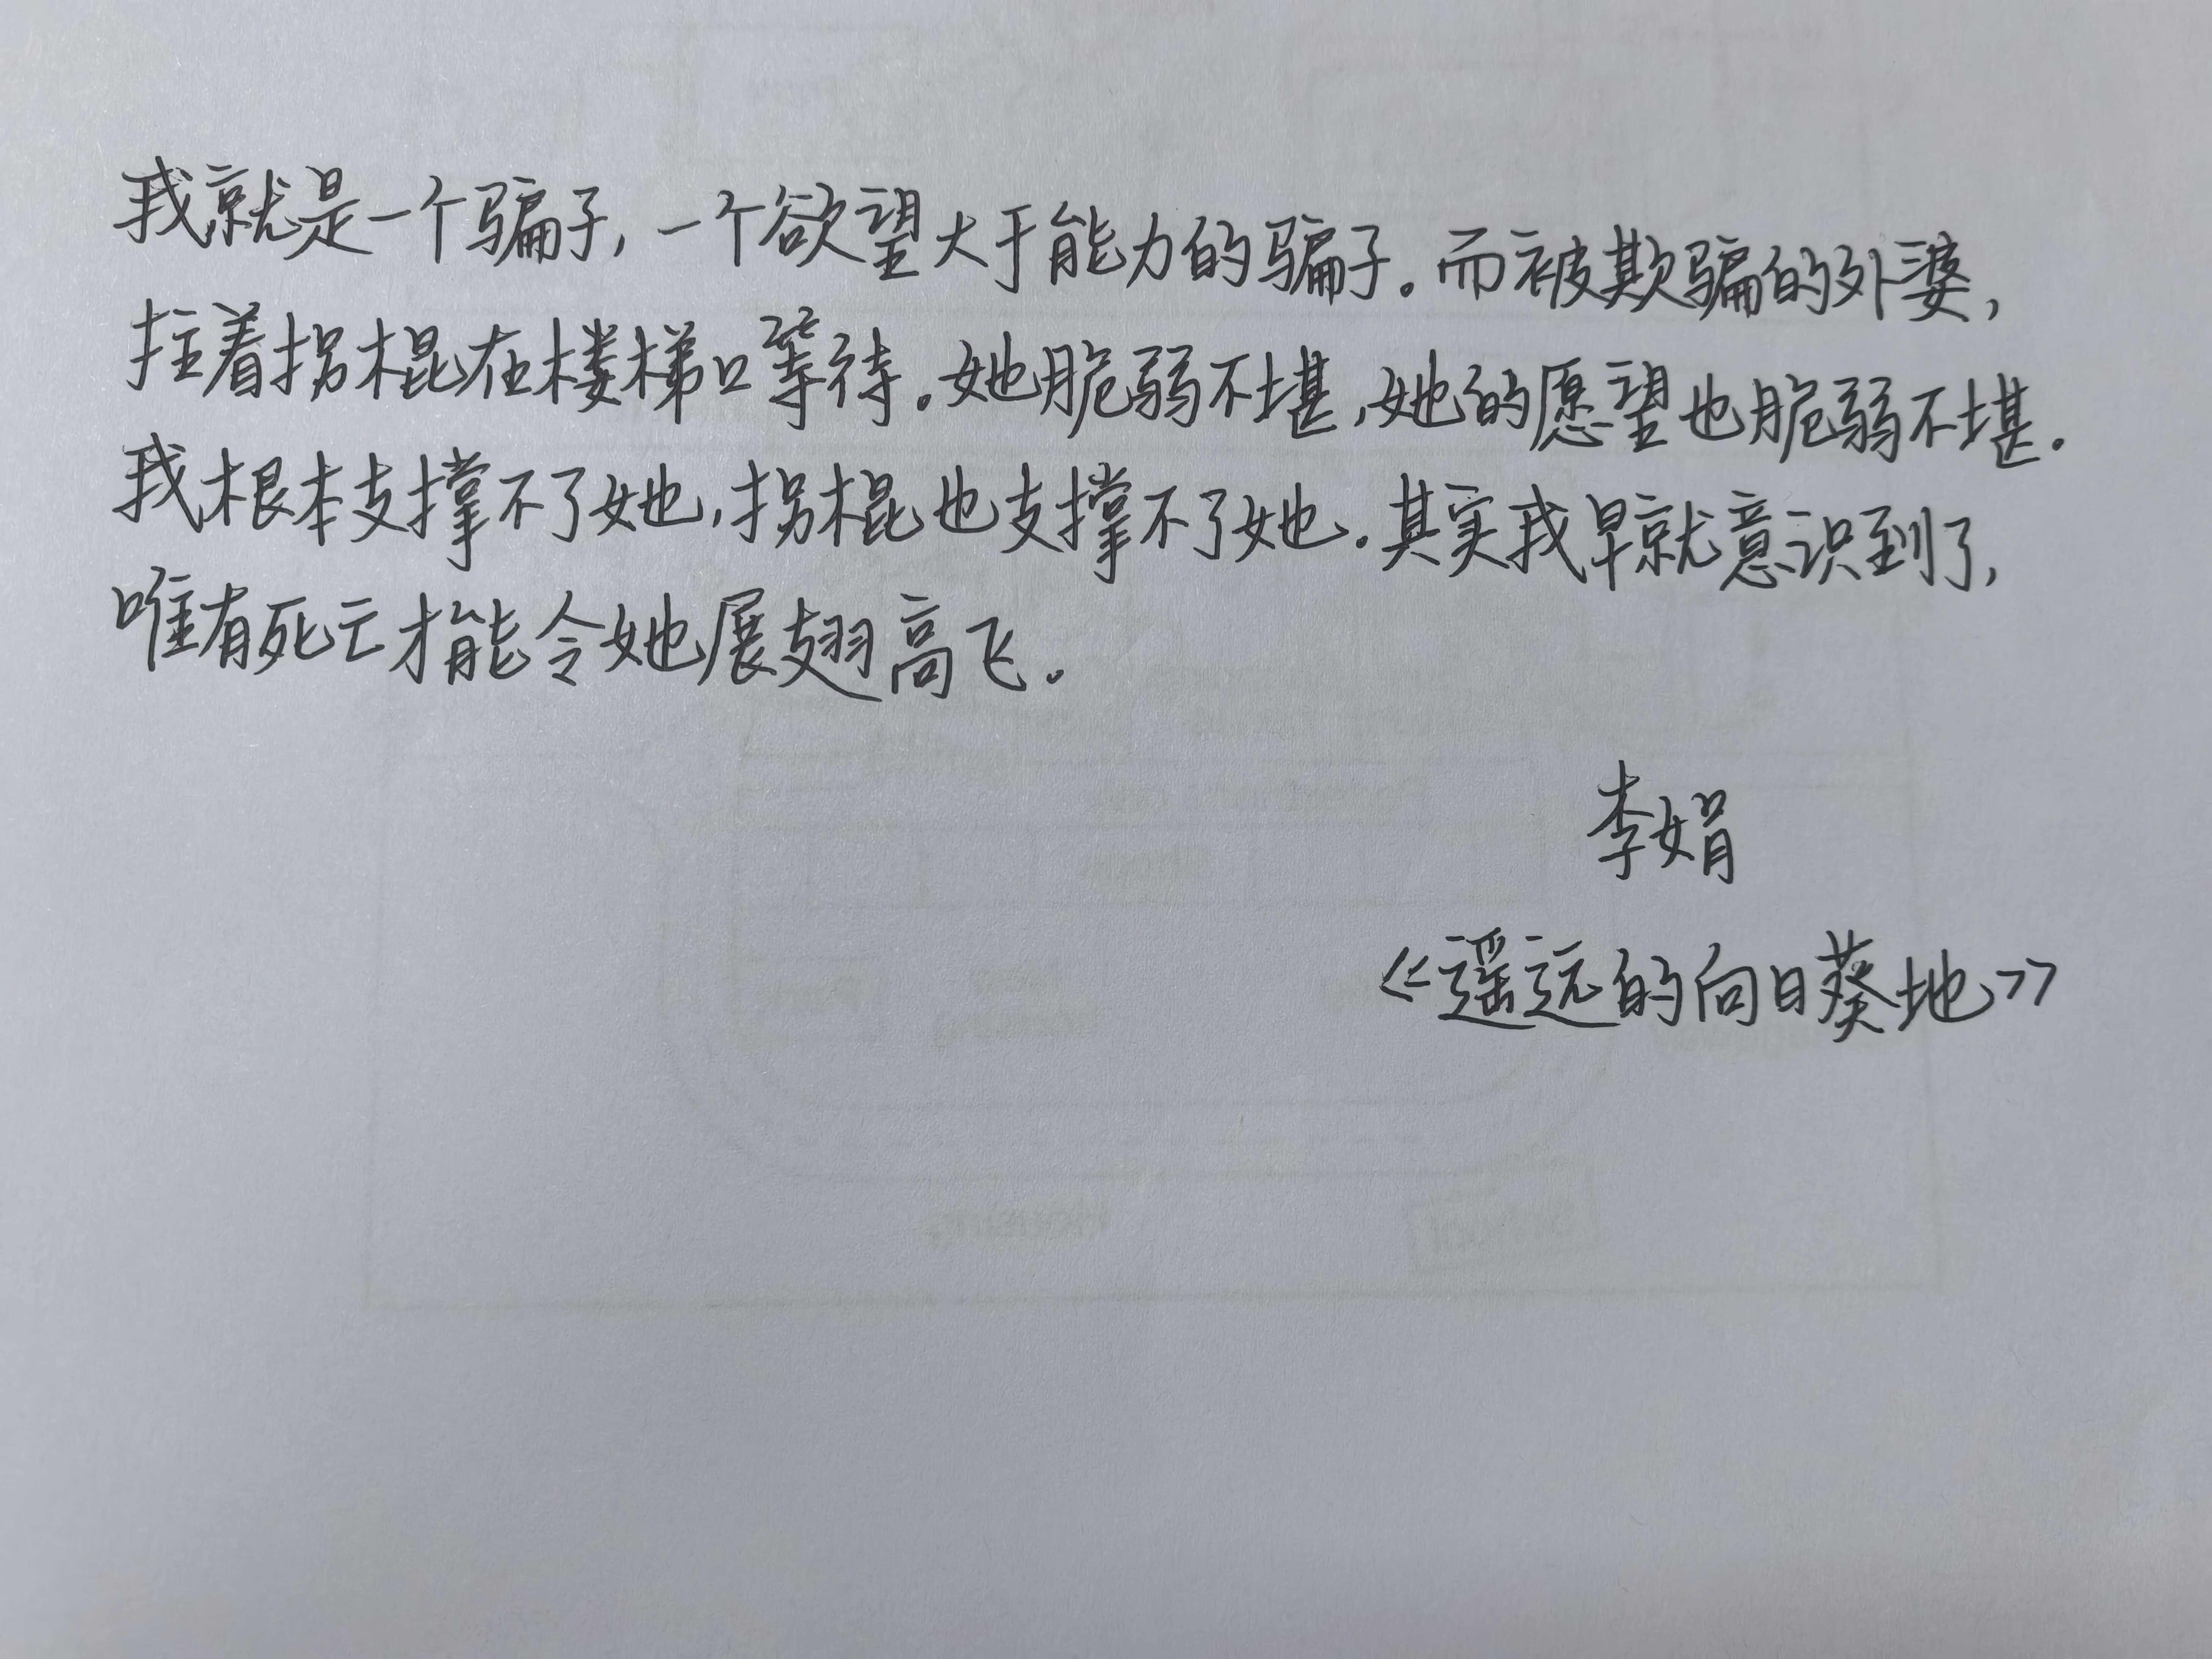 我就是一个骗子，一个欲望大于能力的骗子。而被欺骗的外婆，
拄着拐棍在楼梯口等待。她脆弱不堪，她的愿望也脆弱不堪。
我根本支撑不了她，拐棍也支撑不了她。其实我早就意识到了，
唯有死亡才能令她展翅高飞。
李娟
《遥远的向日葵地》